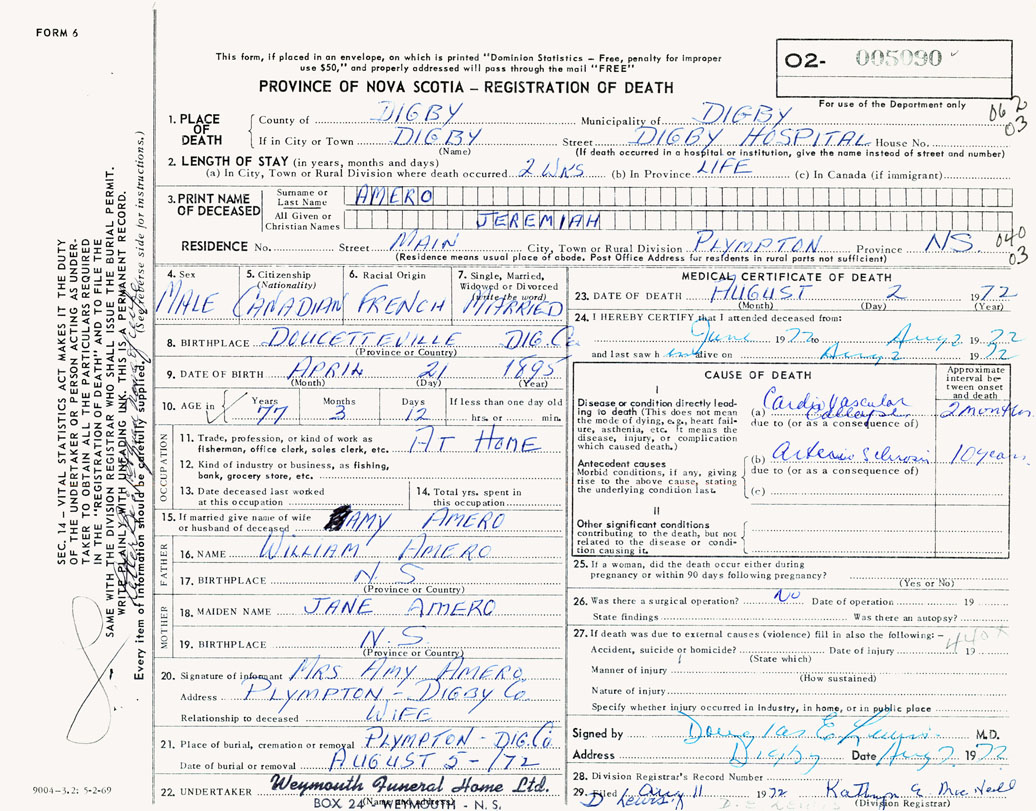 FORM 6
This form, if placed in an envelope, on which is printed "Dominion Statistics – Free, penalty for improper
use $50," and properly addressed will pass through the mail "FREE"
O2- 005090
For use of the Department only
062
03
PROVINCE OF NOVA SCOTIA – REGISTRATION OF DEATH
1. PLACE OF DEATH
County of DIGBY Municipality of DIGBY
If in City or Town DIGBY Street DIGBY HOSPITAL House No.
(Name) (If death occurred in a hospital or institution, give the name instead of street and number)
2. LENGTH OF STAY (in years, months and days)
(a) In City, Town or Rural Division where death occurred 2 WKS (b) In Province LIFE (c) In Canada (if immigrant)
3. PRINT NAME OF DECEASED
Surname or Last Name AMERO
All Given or Christian Names JEREMIAH
RESIDENCE No. Street MAIN City, Town or Rural Division PLYMPTON Province N.S.
040
03
(Residence means usual place of abode. Post Office Address for residents in rural parts not sufficient)
4. Sex
MALE
5. Citizenship
(Nationality)
CANADIAN
6. Racial Origin
FRENCH
7. Single, Married,
Widowed or Divorced
(write the word)
MARRIED
8. BIRTHPLACE DOUCETTEVILLE DIG. Co
(Province or Country)
9. DATE OF BIRTH APRIL 21 1895
(Month) (Day) (Year)
10. AGE in
Years Months Days If less than one day old
77 3 12 hrs. or min.
OCCUPATION
11. Trade, profession, or kind of work as
fisherman, office clerk, sales clerk, etc. AT HOME
12. Kind of industry or business, as fishing,
bank, grocery store, etc.
13. Date deceased last worked
at this occupation
14. Total yrs. spent in
this occupation
15. If married give name of wife
or husband of deceased AMY AMERO
FATHER
16. NAME WILLIAM AMERO
17. BIRTHPLACE N.S
(Province or Country)
MOTHER
18. MAIDEN NAME JANE AMERO
19. BIRTHPLACE N.S
(Province or Country)
20. Signature of informant MRS AMY AMERO
Address PLYMPTON - DIGBY Co
Relationship to deceased WIFE
21. Place of burial, cremation or removal PLYMPTON - DIG. Co.
Date of burial or removal AUGUST 5 - /72
22. UNDERTAKER Weymouth Funeral Home Ltd.
(Name and address)
BOX 24 WEYMOUTH - N.S.
MEDICAL CERTIFICATE OF DEATH
23. DATE OF DEATH AUGUST 2 1972
(Month) (Day) (Year)
24. I HEREBY CERTIFY that I attended deceased from:
June 1972 to Aug 2 1972
and last saw h im alive on Aug 2 1972
CAUSE OF DEATH
Approximate
interval be-
tween onset
and death
I
Disease or condition directly lead-
ing to death (This does not mean
the mode of dying, e.g., heart fail-
ure, asthenia, etc. It means the
disease, injury, or complication
which caused death.)
(a) Cardio Vascular Collapse 2 months
due to (or as a consequence of)
Antecedent causes
Morbid conditions, if any, giving
rise to the above cause, stating
the underlying condition last.
(b) Arterio Sclerosis 10 years
due to (or as a consequence of)
(c)
II
Other significant conditions
contributing to the death, but not
related to the disease or condi-
tion causing it.
25. If a woman, did the death occur either during
pregnancy or within 90 days following pregnancy?
(Yes or No)
26. Was there a surgical operation? No Date of operation 19
State findings Was there an autopsy?
27. If death was due to external causes (violence) fill in also the following:–
Accident, suicide or homicide? Date of injury 19
(State which)
Manner of injury
(How sustained)
Nature of injury
Specify whether injury occurred in industry, in home, or in public place
Signed by Douglas E Lewis M.D.
Address Digby Date Aug 2 1972
28. Division Registrar's Record Number
29. Filed Aug 11 1972 Kathryn E MacNeill
D Lewis
D. E. LEWIS
(Division Registrar)
SEC. 14 – VITAL STATISTICS ACT MAKES IT THE DUTY
OF THE UNDERTAKER OR PERSON ACTING AS UNDER-
TAKER TO OBTAIN ALL THE PARTICULARS REQUIRED
IN THE "REGISTRATION OF DEATH" AND TO FILE THE
SAME WITH THE DIVISION REGISTRAR WHO SHALL ISSUE THE BURIAL PERMIT.
WRITE PLAINLY WITH UNFADING INK. THIS IS A PERMANENT RECORD.
Every item of information should be carefully supplied. (See reverse side for instructions.)
9004-3.2: 5-2-69